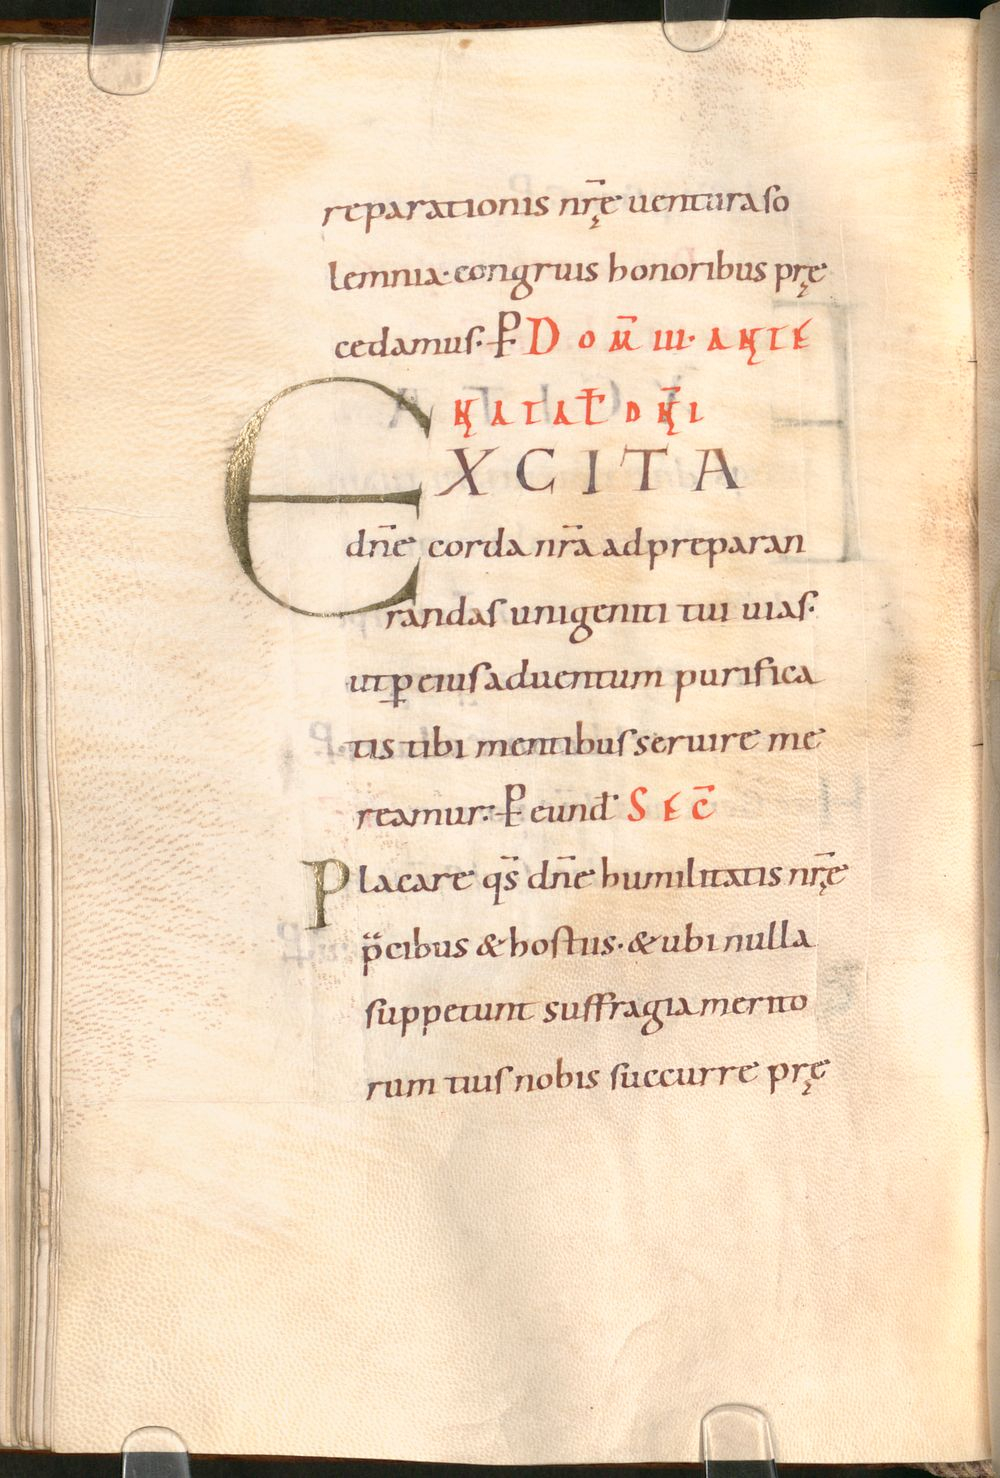 reparationis nr̄ę uentura so
lemnia· congruis honoribus prę
cedamus·  ꝑ DOM̄ III· ANTE
NATAT̄ DN̄I
EXCITA
dn̄e corda nr̄a ad preparan
randas unigeniti tui uias·
ut ꝑ eius aduentum purifica
tis tibi mentibus seruire me
reamur·: ꝑ eund̄ SEC̄
Placare qs̄ dn̄e humilitatis nr̄ę
p̈cibus & hostiis· & ubi nulla
suppetunt suffragia merito
rum tuis nobis succurre prę